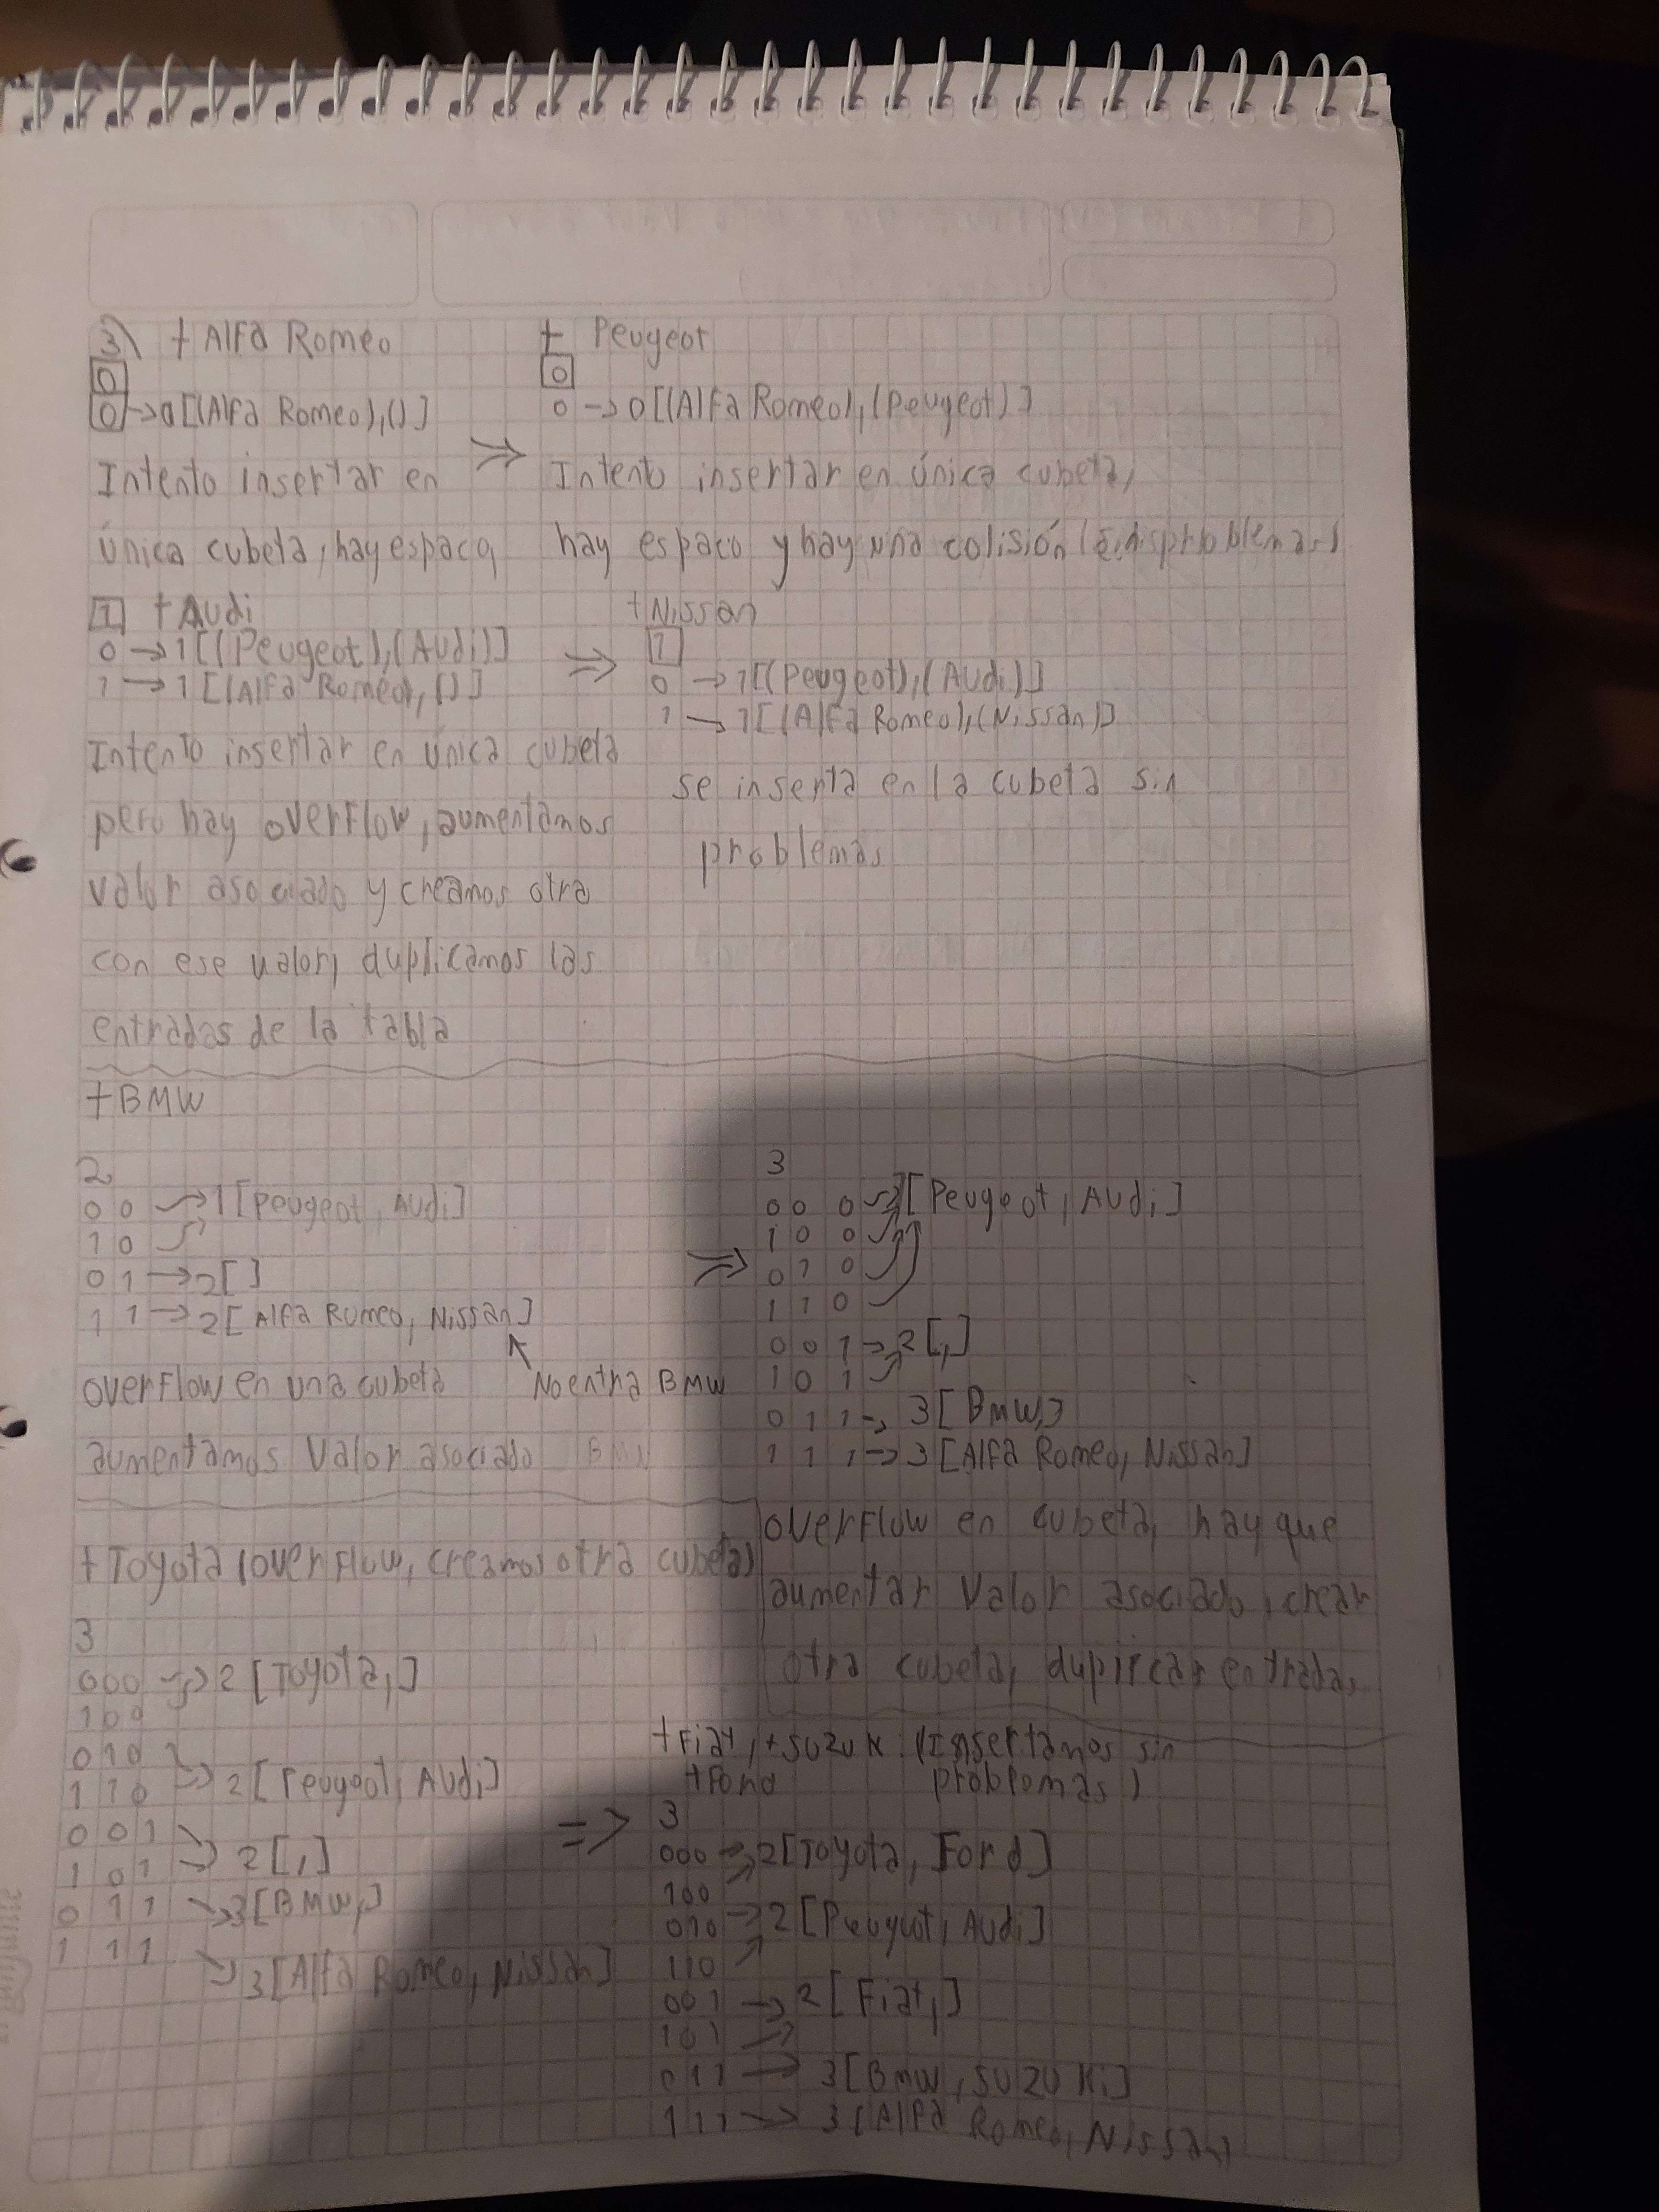 3) + Alfa Romeo
0
0 → 0[(Alfa Romeo),()]
Intento insertar en
única cubeta, hay espacio
⇒
+ Peugeot
0
0 → 0[(Alfa Romeo),(Peugeot)]
Intento insertar en única cubeta,
hay espacio y hay una colisión (sin problemas)
1 + Audi
0 → 1[(Peugeot),(Audi)]
1 → 1[(Alfa Romeo),()]
Intento insertar en única cubeta
pero hay overflow, aumentamos
valor asociado y creamos otra
con ese valor, duplicamos las
entradas de la tabla
⇒
+Nissan
1
0 → 1[(Peugeot),(Audi)]
1 → 1[(Alfa Romeo),(Nissan)]
se inserta en la cubeta sin
problemas
+BMW
2
00 → 1[Peugeot, Audi]
10
01 → 2[]
11 → 2[Alfa Romeo, Nissan]
overflow en una cubeta
No entra BMW
aumentamos valor asociado BMW
⇒
3
000 → [Peugeot, Audi]
100
010
110
001 → 2[,]
101
011 → 3[BMW,]
111 → 3[Alfa Romeo, Nissan]
overflow en cubeta, hay que
aumentar valor asociado, crear
otra cubeta, duplicar entradas
+Toyota (overflow, creamos otra cubeta)
3
000 → 2[Toyota,]
100
010
110 → 2[Peugeot, Audi]
001
101 → 2[,]
011 → 3[BMW,]
111
3[Alfa Romeo, Nissan]
⇒
+Fiat, +Suzuki (Insertamos sin
+Ford problemas)
3
000 → 2[Toyota, Ford]
100
010 → 2[Peugeot, Audi]
110
001 → 2[Fiat,]
101
011 → 3[BMW, Suzuki]
111 → 3[Alfa Romeo, Nissan]